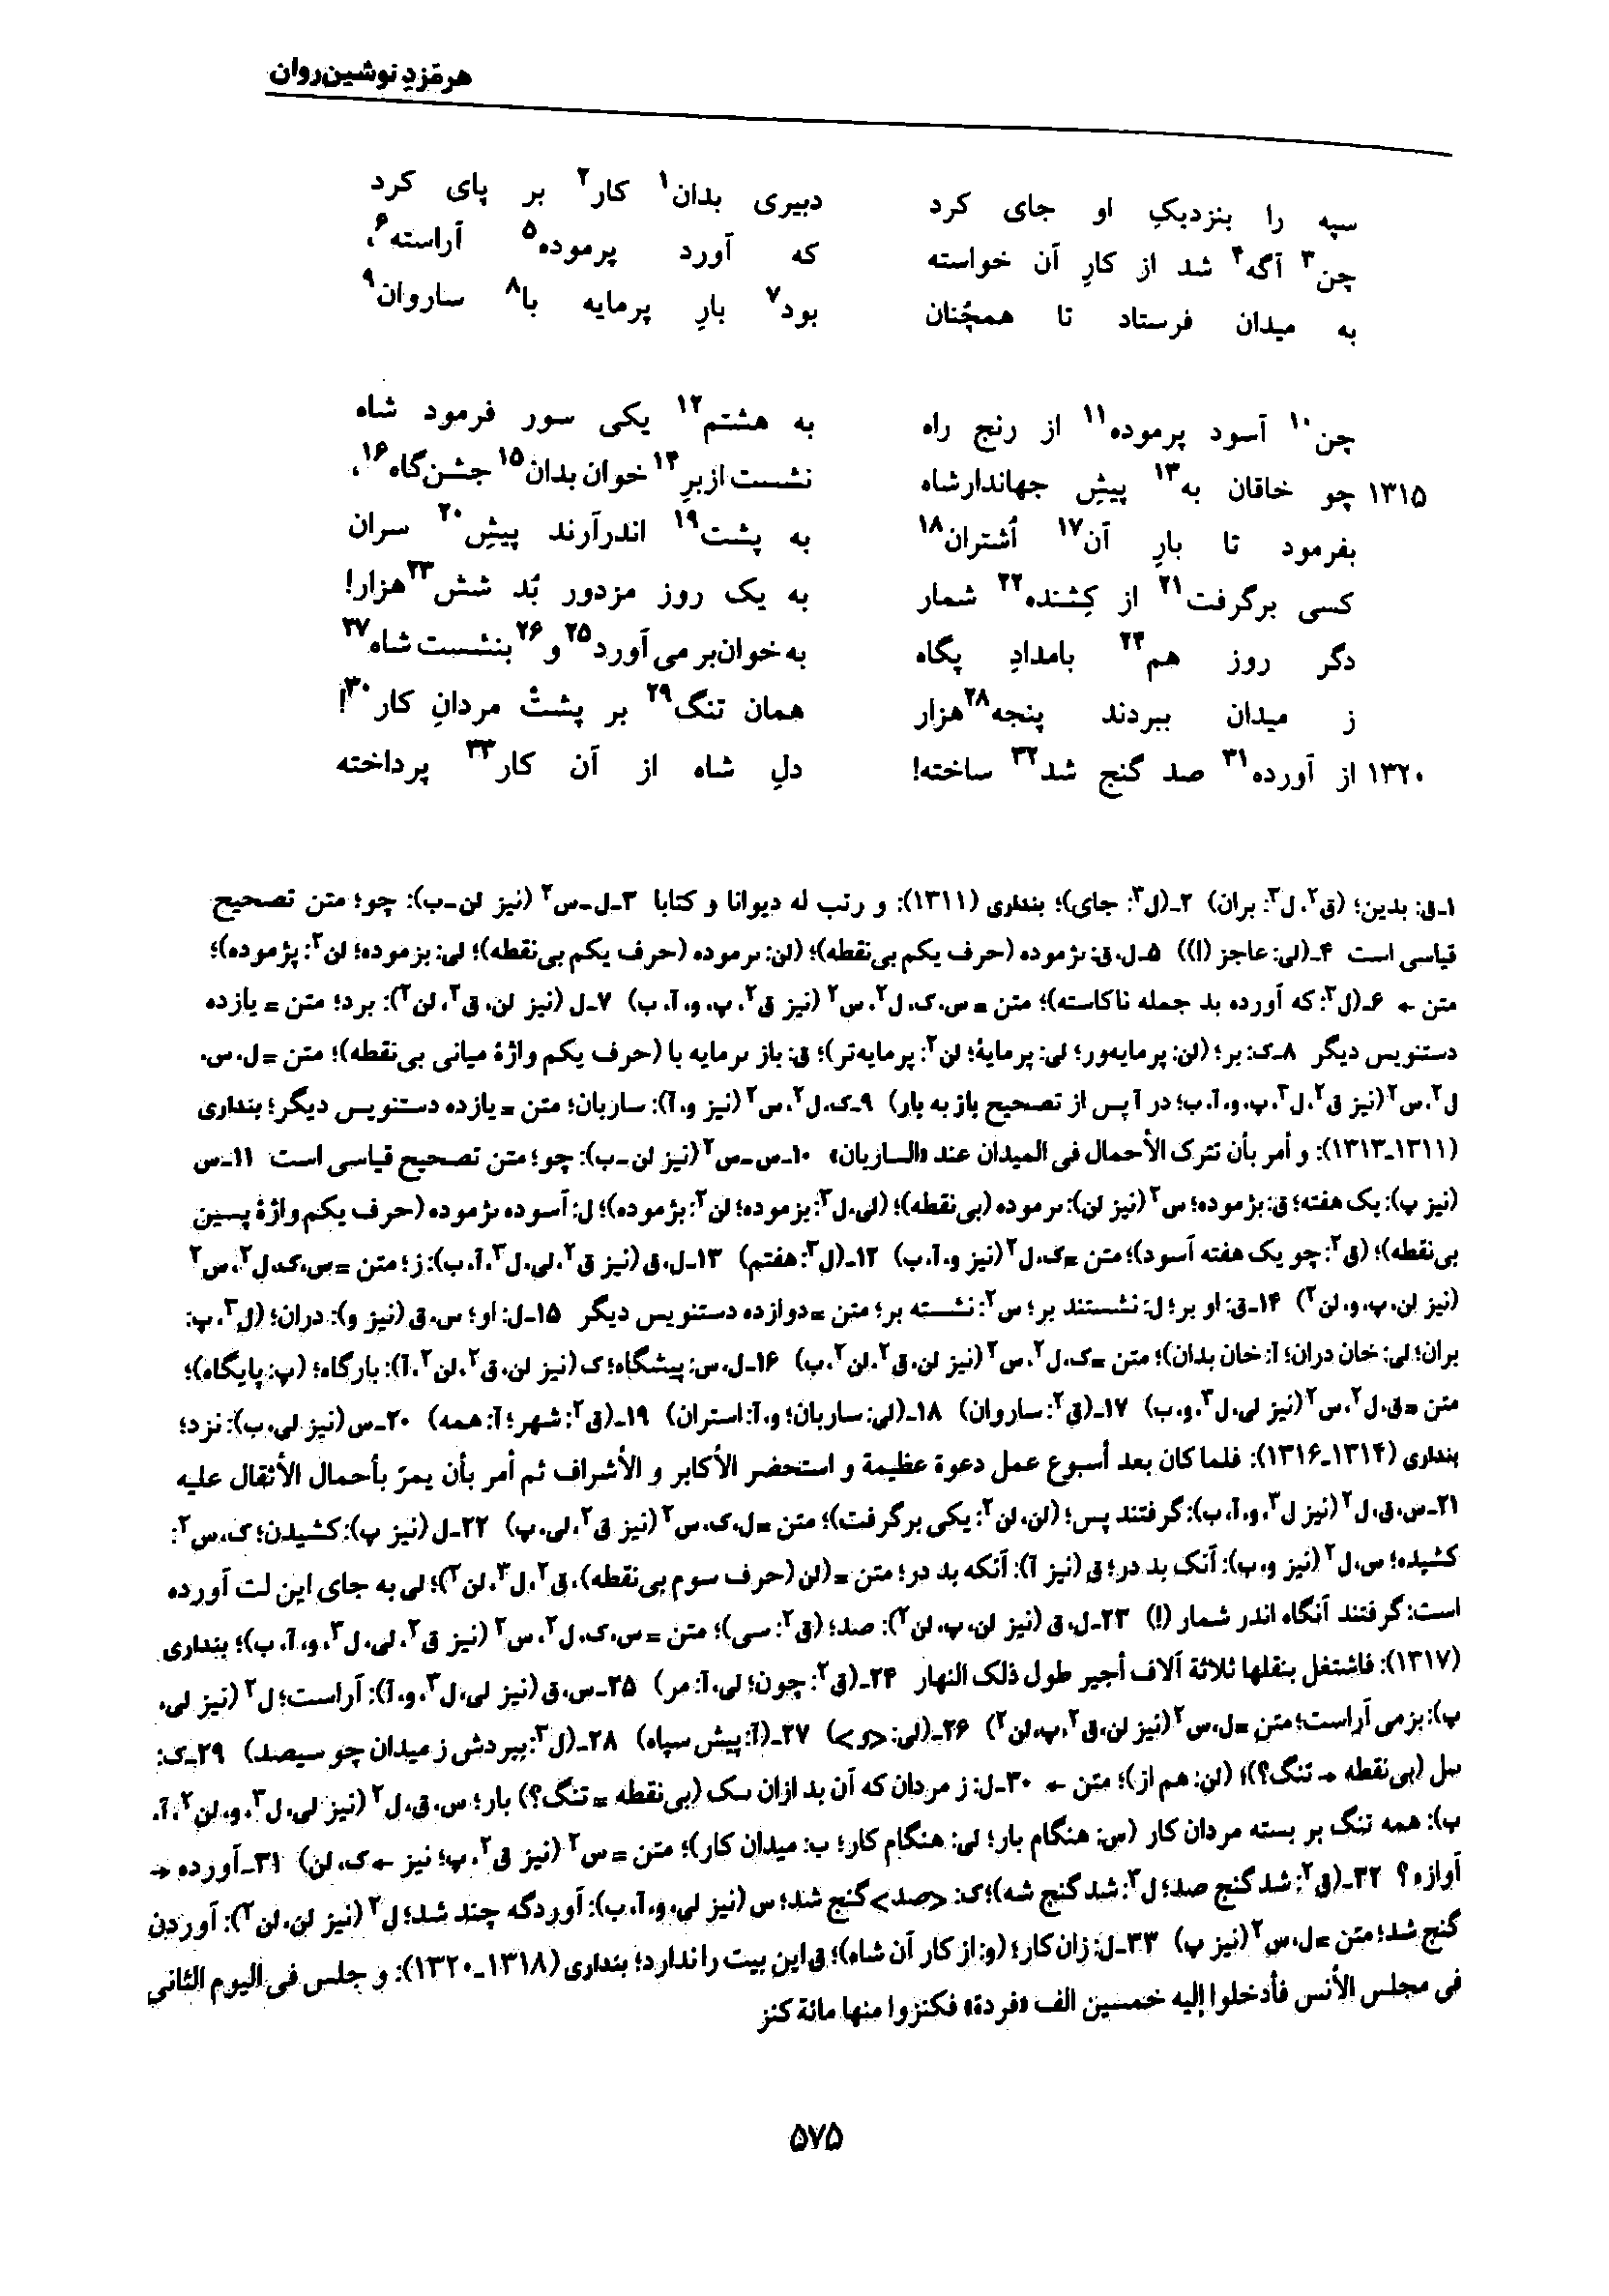 هرمَزدِ نوشین‌روان
سپه را بنزدیکِ او جای کرد    دبیری بدان۱ کار۲ بر پای کرد
چن۳ آگه۴ شد از کارِ آن خواسته    که آورد پرموده۵ آراسته۶،
به میدان فرستاد تا همچُنان    بود۷ بارِ پرمایه با۸ ساروان۹
چن۱۰ آسود پرموده۱۱ از رنج راه    به هشتم۱۲ یکی سور فرمود شاه
۱۳۱۵ چو خاقان به۱۳ پیشِ جهاندارشاه    نشست ازبرِ۱۴ خوان بدان۱۵ جشن‌گاه۱۶،
بفرمود تا بارِ آن۱۷ اُشتران۱۸    به پشت۱۹ اندرآرند پیشِ۲۰ سران
کسی برگرفت۲۱ از کِشنده۲۲ شمار    به یک روز مزدور بُد شش۲۳هزار!
دگر روز هم۲۴ بامدادِ پگاه    به خوان‌بر می آورد۲۵ و۲۶ بنشست شاه۲۷
ز میدان ببردند پنجه۲۸هزار    همان تنگ۲۹ بر پشتْ مردانِ کار۳۰!
۱۳۲۰ از آورده۳۱ صد گنج شد۳۲ ساخته!    دلِ شاه از آن کار۳۳ پرداخته
۱ـ ق: بدین؛ (ق۲، ل۳: بران) ۲ـ (ل۳: جای)؛ بنداری (۱۳۱۱): و رتب له دیوانا و کتابا ۳ـ ل ـ س۲ (نیز لن ـ ب): چو؛ متن تصحیح
قیاسی است ۴ـ (لی: عاجز (!)) ۵ـ ل، ق: ٮژموده (حرف یکم بی‌نقطه)؛ (لن: ٮرموده (حرف یکم بی‌نقطه)؛ لی: بزموده؛ لن۲: پژموده)؛
متن ← ۶ـ (ل۳: که آورده بد جمله ناکاسته)؛ متن = س، ک، ل۲، س۲ (نیز ق۲، پ، و، آ، ب) ۷ـ ل (نیز لن، ق۲، لن۲): برد؛ متن = یازده
دستنویس دیگر ۸ـ ک: بر؛ (لن: پرمایه‌ور؛ لی: پرمایهٔ؛ لن۲: پرمایه‌تر)؛ ق: باز ٮرمایه با (حرف یکم واژهٔ میانی بی‌نقطه)؛ متن = ل، س،
ل۲، س۲ (نیز ق۲، ل۳، پ، و، آ، ب؛ در آ پس از تصحیح باز به بار) ۹ـ ک، ل۲، س۲ (نیز و، آ): ساربان؛ متن = یازده دستنویس دیگر؛ بنداری
(۱۳۱۱ـ۱۳۱۳): و أمر بأن تترک الأحمال فی المیدان عند «الساربان» ۱۰ـ س ـ س۲ (نیز لن ـ ب): چو؛ متن تصحیح قیاسی است ۱۱ـ س
(نیز پ): یک هفته؛ ق: بژموده؛ س۲ (نیز لن): ٮرموده (بی‌نقطه)؛ (لی، ل۳: بزموده؛ لن۲: بژموده)؛ ل: آسوده ٮژموده (حرف یکم واژهٔ پسین
بی‌نقطه)؛ (ق۲: چو یک هفته آسود)؛ متن = ک، ل۲ (نیز و، آ، ب) ۱۲ـ (ل۳: هفتم) ۱۳ـ ل، ق (نیز ق۲، لی، ل۳، آ، ب): ز؛ متن = س، ک، ل۲، س۲
(نیز لن، پ، و، لن۲) ۱۴ـ ق: او بر؛ ل: نشستند بر؛ س۲: نشسته بر؛ متن = دوازده دستنویس دیگر ۱۵ـ ل: او؛ س، ق (نیز و): دران؛ (ل۳، پ:
بران؛ لی: خان دران؛ آ: خان بدان)؛ متن = ک، ل۲، س۲ (نیز لن، ق۲، لن۲، ب) ۱۶ـ ل، س: پیشگاه؛ ک (نیز لن، ق۲، لن۲، آ): بارگاه؛ (پ: پایگاه)؛
متن = ق، ل۲، س۲ (نیز لی، ل۳، و، ب) ۱۷ـ (ق۲: ساروان) ۱۸ـ (لی: ساربان؛ و، آ: استران) ۱۹ـ (ق۲: شهر؛ آ: همه) ۲۰ـ س (نیز لی، ب): نزد؛
بنداری (۱۳۱۴ـ۱۳۱۶): فلما کان بعد أسبوع عمل دعوة عظیمة و استحضر الأکابر و الأشراف ثم أمر بأن یمرّ بأحمال الأثقال علیه
۲۱ـ س، ق، ل۲ (نیز ل۳، و، آ، ب): گرفتند پس؛ (لن، لن۲: یکی برگرفت)؛ متن = ل، ک، س۲ (نیز ق۲، لی، پ) ۲۲ـ ل (نیز پ): کشیدن؛ ک، س۲:
کشیده؛ س، ل۲ (نیز و، ب): آنک بد در؛ ق (نیز آ): آنکه بد در؛ متن = (لن (حرف سوم بی‌نقطه)، ق۲، ل۳، لن۲)؛ لی به جای این لت آورده
است: گرفتند آنگاه اندر شمار (!) ۲۳ـ ل، ق (نیز لن، پ، لن۲): صد؛ (ق۲: سی)؛ متن = س، ک، ل۲، س۲ (نیز ق۲، لی، ل۳، و، آ، ب)؛ بنداری
(۱۳۱۷): فاشتغل بنقلها ثلاثة آلاف أجیر طول ذلک النهار ۲۴ـ (ق۲: چون؛ لی، آ: مر) ۲۵ـ س، ق (نیز لی، ل۳، و، آ): آراست؛ ل۲ (نیز لی،
ب): بزمی آراست؛ متن = ل، س۲ (نیز لن، ق۲، پ، لن۲) ۲۶ـ (لی: <و>) ۲۷ـ (آ: پیش سپاه) ۲۸ـ (ل۳: ببردش ز میدان چو سیصد) ۲۹ـ ک:
ٮٮل (بی‌نقطه → تنگ؟)؛ (لن: هم از)؛ متن ← ۳۰ـ ل: ز مردان که آن بد ازان ٮٮک (بی‌نقطه = تنگ؟) بار؛ س، ق، ل۲ (نیز لی، ل۳، و، لن۲، آ،
ب): همه تنگ بر بسته مردان کار (س: هنگام بار؛ لی: هنگام کار؛ ب: میدان کار)؛ متن = س۲ (نیز ق۲، پ؛ نیز ← ک، لن) ۳۱ـ آورده →
آوازه؟ ۳۲ـ (ق۲: شد گنج صد؛ ل۳: شد گنج شه)؛ ک: <صد> گنج شد؛ س (نیز لی، و، آ، ب): آوردگه چند شد؛ ل۲ (نیز لن، لن۲): آوردن
گنج شد؛ متن = ل، س۲ (نیز پ) ۳۳ـ ل: زان کار؛ (و: از کار آن شاه)؛ ق این بیت را ندارد؛ بنداری (۱۳۱۸ـ۱۳۲۰): و جلس فی الیوم الثانی
فی مجلس الأنس فأدخلوا إلیه خمسین الف «فردة» فکنزوا منها مائة کنز
۵۷۵